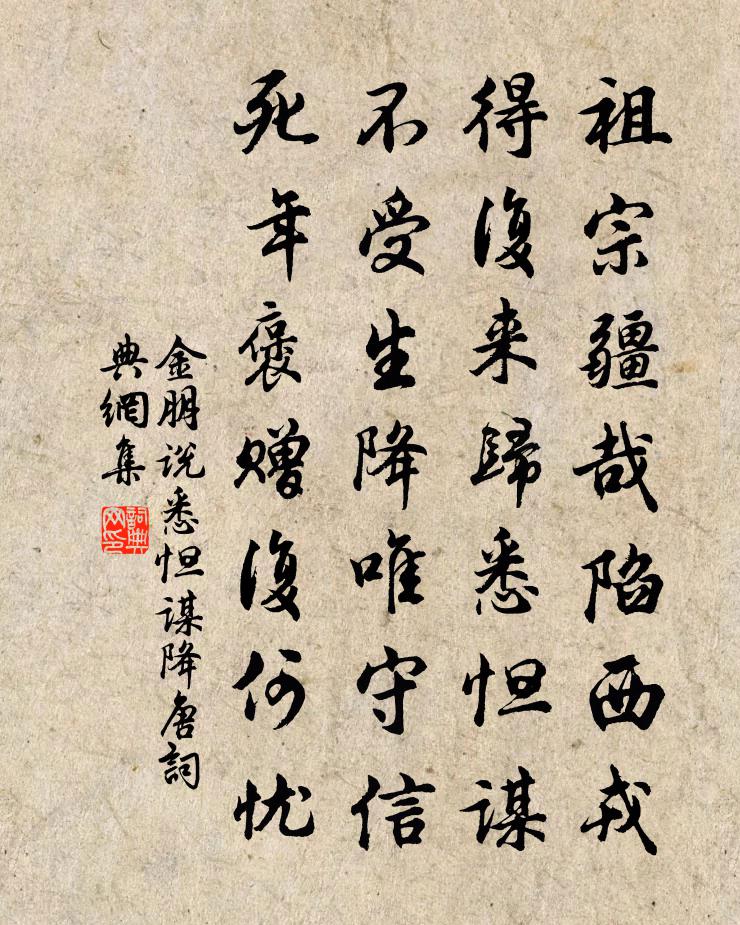 祖宗疆哉陷西戎
得復来歸悉怛謀
不受生降唯守信
死年褒赠復何忧
金朋说悉怛谋降唐詞
典網集
詞典网印